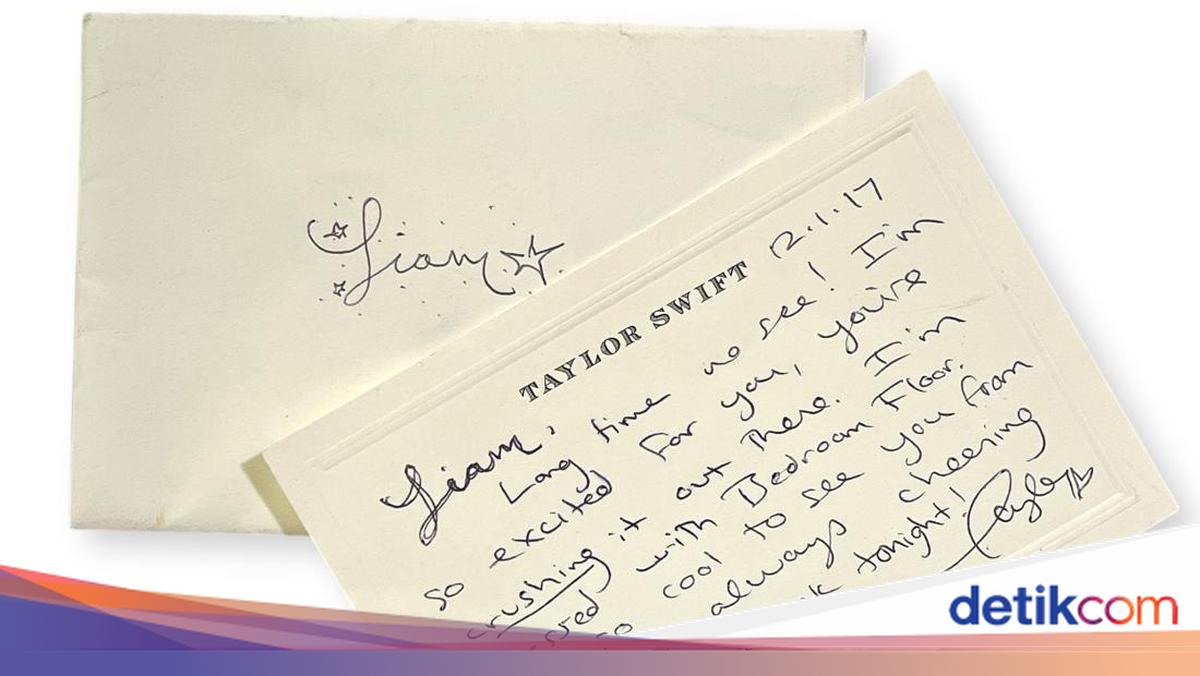 Liam
TAYLOR SWIFT 12.1.17
Liam,
Long time no see! I'm
so excited for you, you're
crushing it out there. I'm
with Bedroom Floor.
so cool to see you from
always cheering
tonight!
Taylor
detikcom